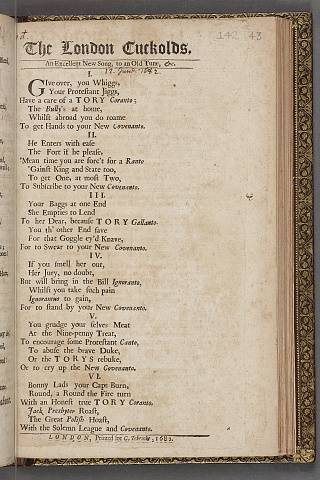 142 43
The London Cuckolds.
An Excellent New Song, to an Old Tune, &c.
12. June. 1682.
I.
Give over, you Whiggs,
Your Protestant Jiggs,
Have a care of a TORY Coranto;
The Bully's at home,
Whilst abroad you do roame
To get Hands to your New Covenanto.
II.
He Enters with ease
The Fort if he please,
'Mean time you are forc't for a Ranto
'Gainst King and State too,
To get One, at most Two,
To Subscribe to your New Covenanto.
III.
Your Baggs at one End
She Empties to Lend
To her Dear, because TORY Gallanto.
You th' other End save
For that Goggle ey'd Knave,
For to Swear to your New Covenanto.
IV.
If you smell her out,
Her Jury, no doubt,
But will bring in the Bill Ignoranto,
Whilst you take such pain
Ignoramus to gain,
For to stand by your New Covenanto.
V.
You grudge your selves Meat
At the Nine-penny Treat,
To encourage some Protestant Canto,
To abuse the brave Duke,
Or the TORYS rebuke,
Or to cry up the New Covenanto.
VI.
Bonny Lads your Caps Burn,
Round, a Round the Fire turn
With an Honest true TORY Coranto,
Jack Presbyter Roast,
The Great Polish Hoast,
With the Solemn League and Covenanto.
LONDON, Printed for 1682.